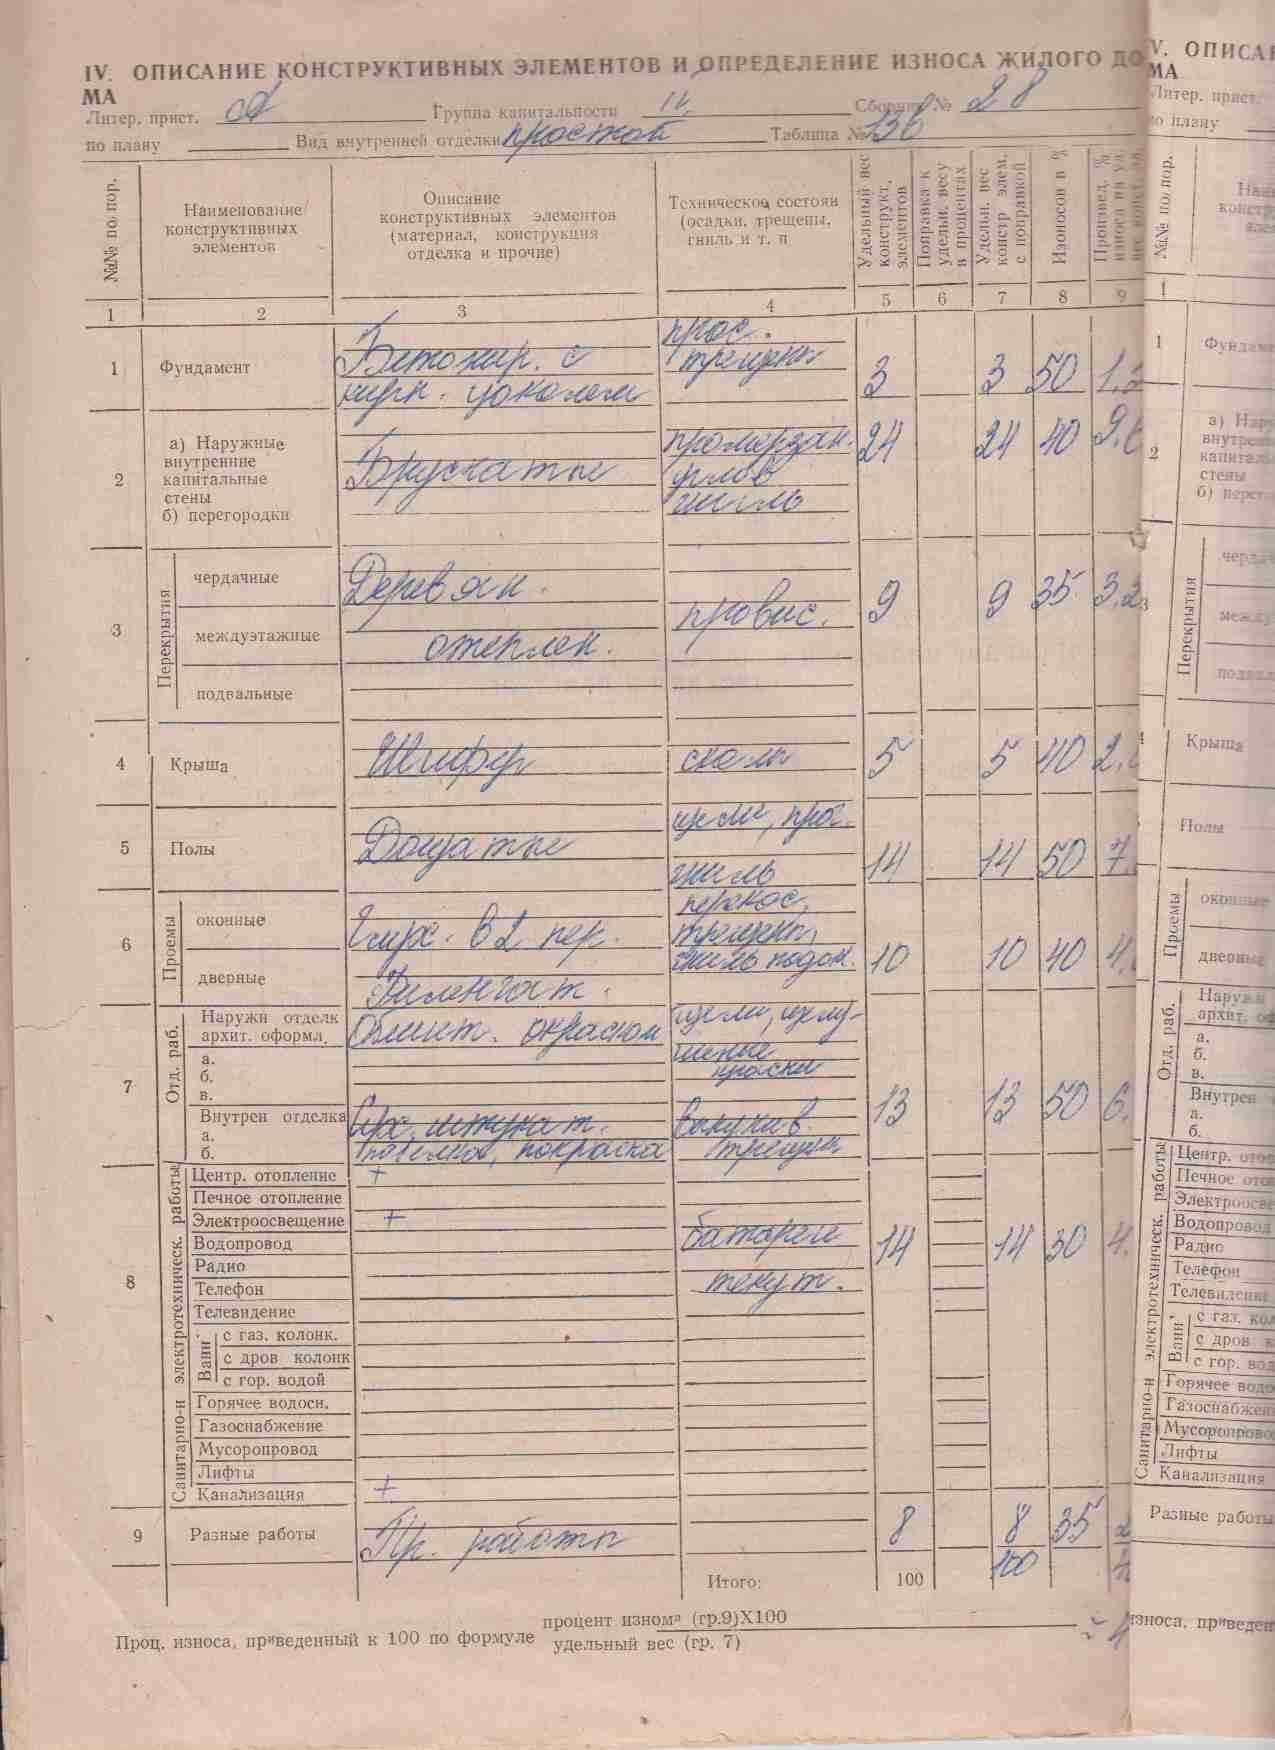 IV. ОПИСАНИЕ КОНСТРУКТИВНЫХ ЭЛЕМЕНТОВ И ОПРЕДЕЛЕНИЕ ИЗНОСА ЖИЛОГО ДО
МА
Литер. прист. А Группа капитальности Сборник № 28
по плану Вид внутренней отделки простой Таблица № 13в
№№ по пор.
Наименование
конструктивных
элементов
Описание
конструктивных элементов
(материал, конструкция
отделка и прочие)
Техническое состоян
(осадки, трещены,
гниль и т. п
Удельный вес
конструкт.
элементов
Поправка к
удельн. весу
в процентах
Удельн. вес
констр элем.
с поправкой
Изоносов в %
Произвед. %
износа на уд.
1 2 3 4 5 6 7 8 9
1 Фундамент Бетонир. с
кирп. цоколем
прос.
трещины
3 3 50 1.
2 а) Наружные
внутренние
капитальные
стены
б) перегородки
Брускатые
промерзан.
углов
гниль
24 24 40 9.6
3 Перекрытия
чердачные
междуэтажные
подвальные
Деревян.
отеплен.
провис.
9 9 35 3.
4 Крыша Шифер сколы 5 5 40 2.
5 Полы Дощатые щели, прог.
гниль
14 14 50 7.
6 Проемы
оконные
дверные
Глух. в 2 пер.
Филенчат.
перекос,
трещины,
гниль подок.
10 10 40 4.
7 Отд. раб.
Наружн отделк
архит. оформл.
а.
б.
в.
Внутрен отделка
а.
б.
Обшит. окрашен
щели, шелу-
шение
краски
штукат.
побелка, покраска
выпучив.
трещин
13 13 50 6.
8 Санитарно-и электротехническ. работы
Центр. отопление +
Печное отопление
Электроосвещение +
Водопровод
Радио
Телефон
Телевидение
Ванн
с газ. колонк.
с дров колонк
с гор. водой
Горячее водосн.
Газоснабжение
Мусоропровод
Лифты
Канализация +
батареи
текут.
14 14 30 4.
9 Разные работы Пр. работы 8 8 35 2
Итого: 100 100
Проц. износа, приведенный к 100 по формуле
процент износа (гр.9)X100
удельный вес (гр. 7)
V. ОПИСА
МА
Литер. прист.
по плану
№№ по пор.
1
1 Фундаме
2 а) Нару
внутренн
капиталь
стены
б) перего
Перекрытия
чердач
между
подвал
Крыша
Полы
Проемы
оконные
дверные
Отд. раб.
Наружн
архит. оф
а.
б.
в.
Внутрен
а.
б.
Санитарно-и электротехническ. работы
Центр. отоп
Печное ото
Электроосве
Водопровод
Радио
Телефон
Телевидение
Ванн
с газ. кол
с дров к
с гор. вод
Горячее водо
Газоснабжен
Мусоропрово
Лифты
Канализация
Разные работы
износа, приведен